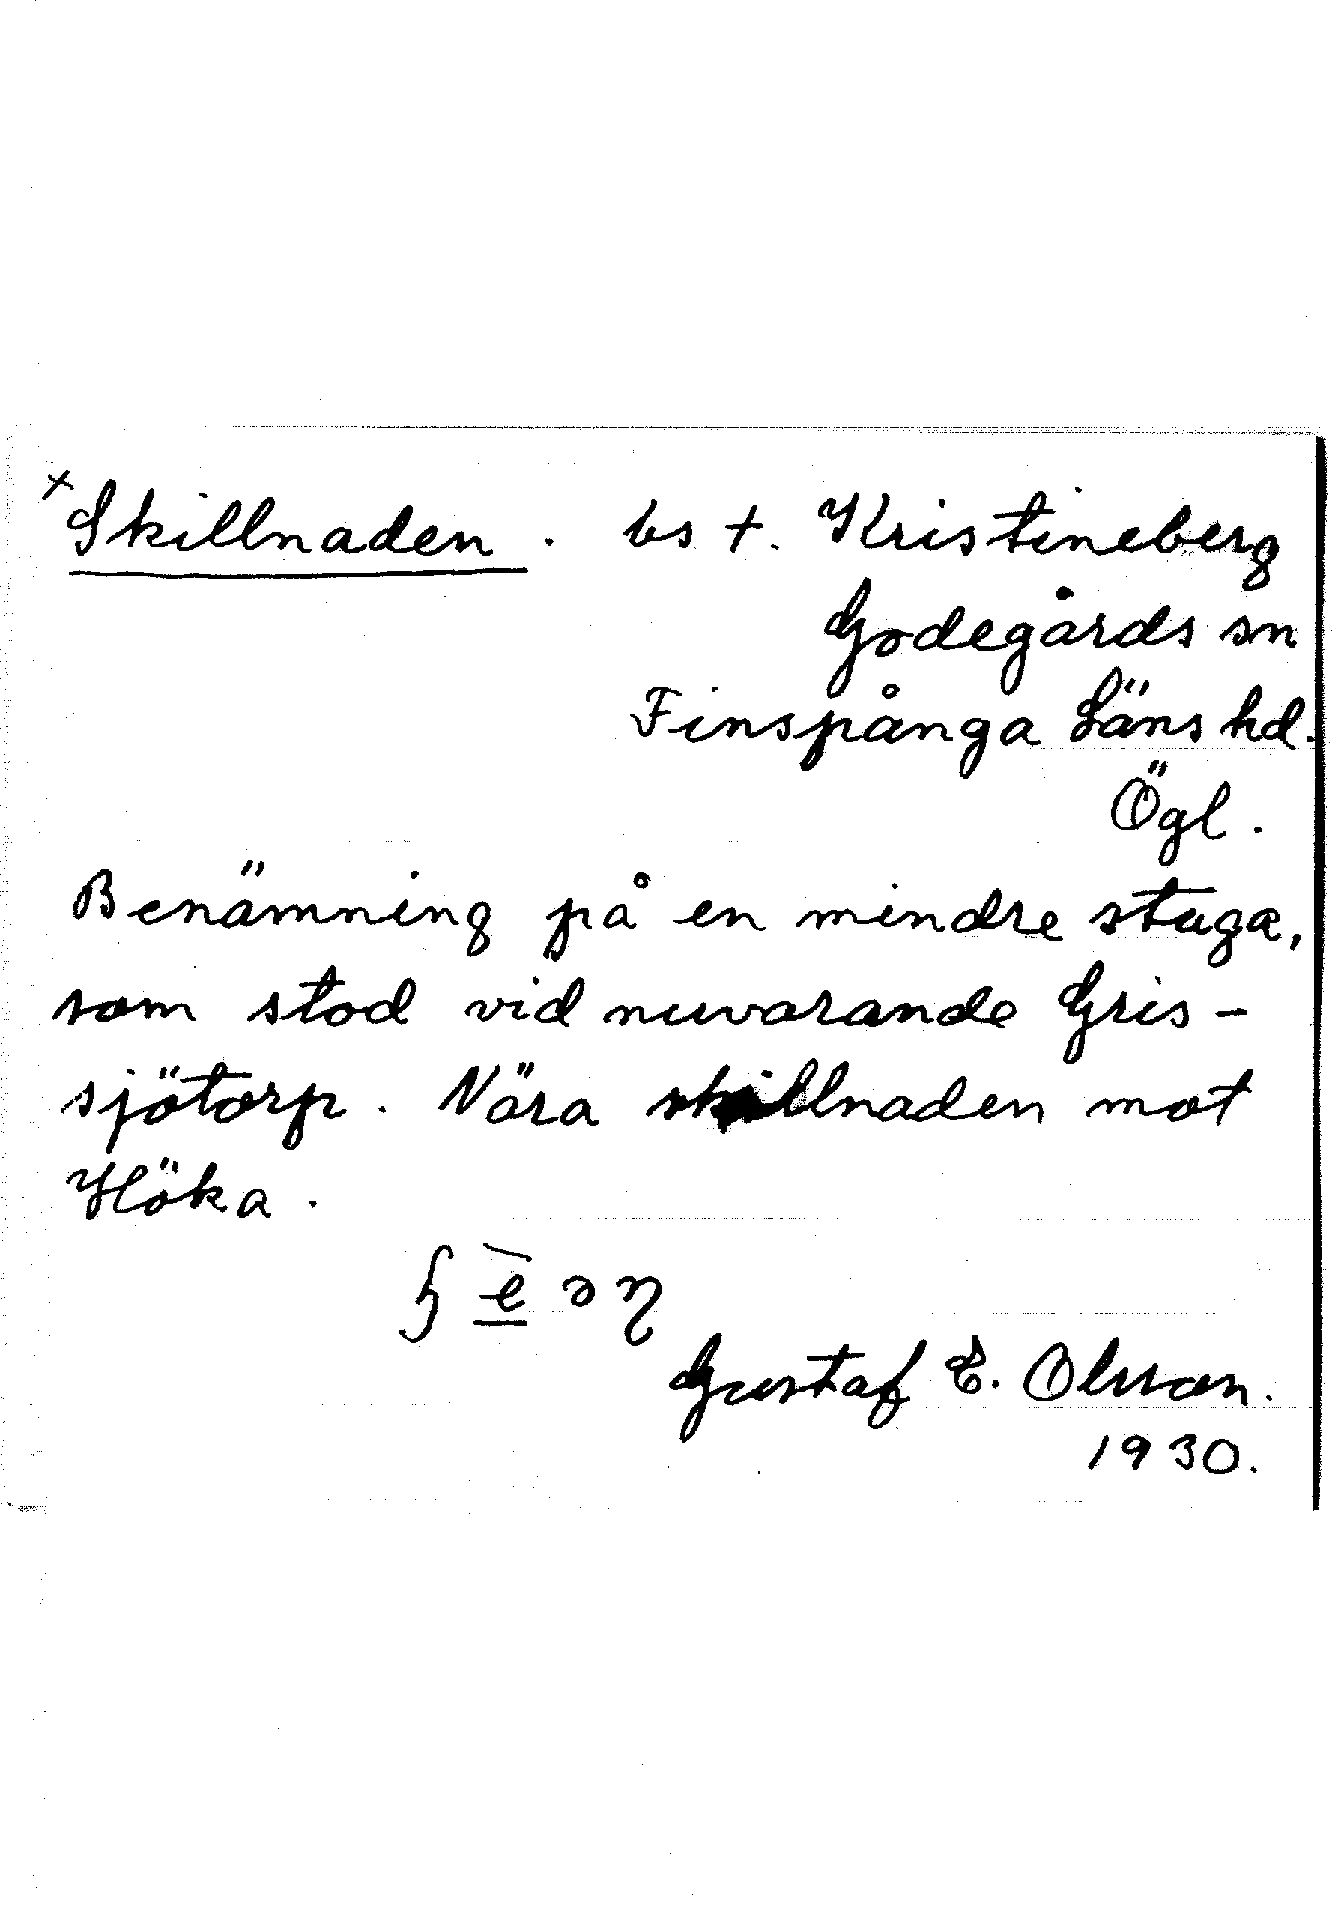 ×Skillnaden. bs t. Kristineberg
Godegårds sn
Finspånga Läns hd.
Ögl.
Benämning på en mindre stuga,
som stod vid nuvarande Gris-
sjötorp. Nära skillnaden mot
Höka.
Gustaf E. Olsson.
1930.